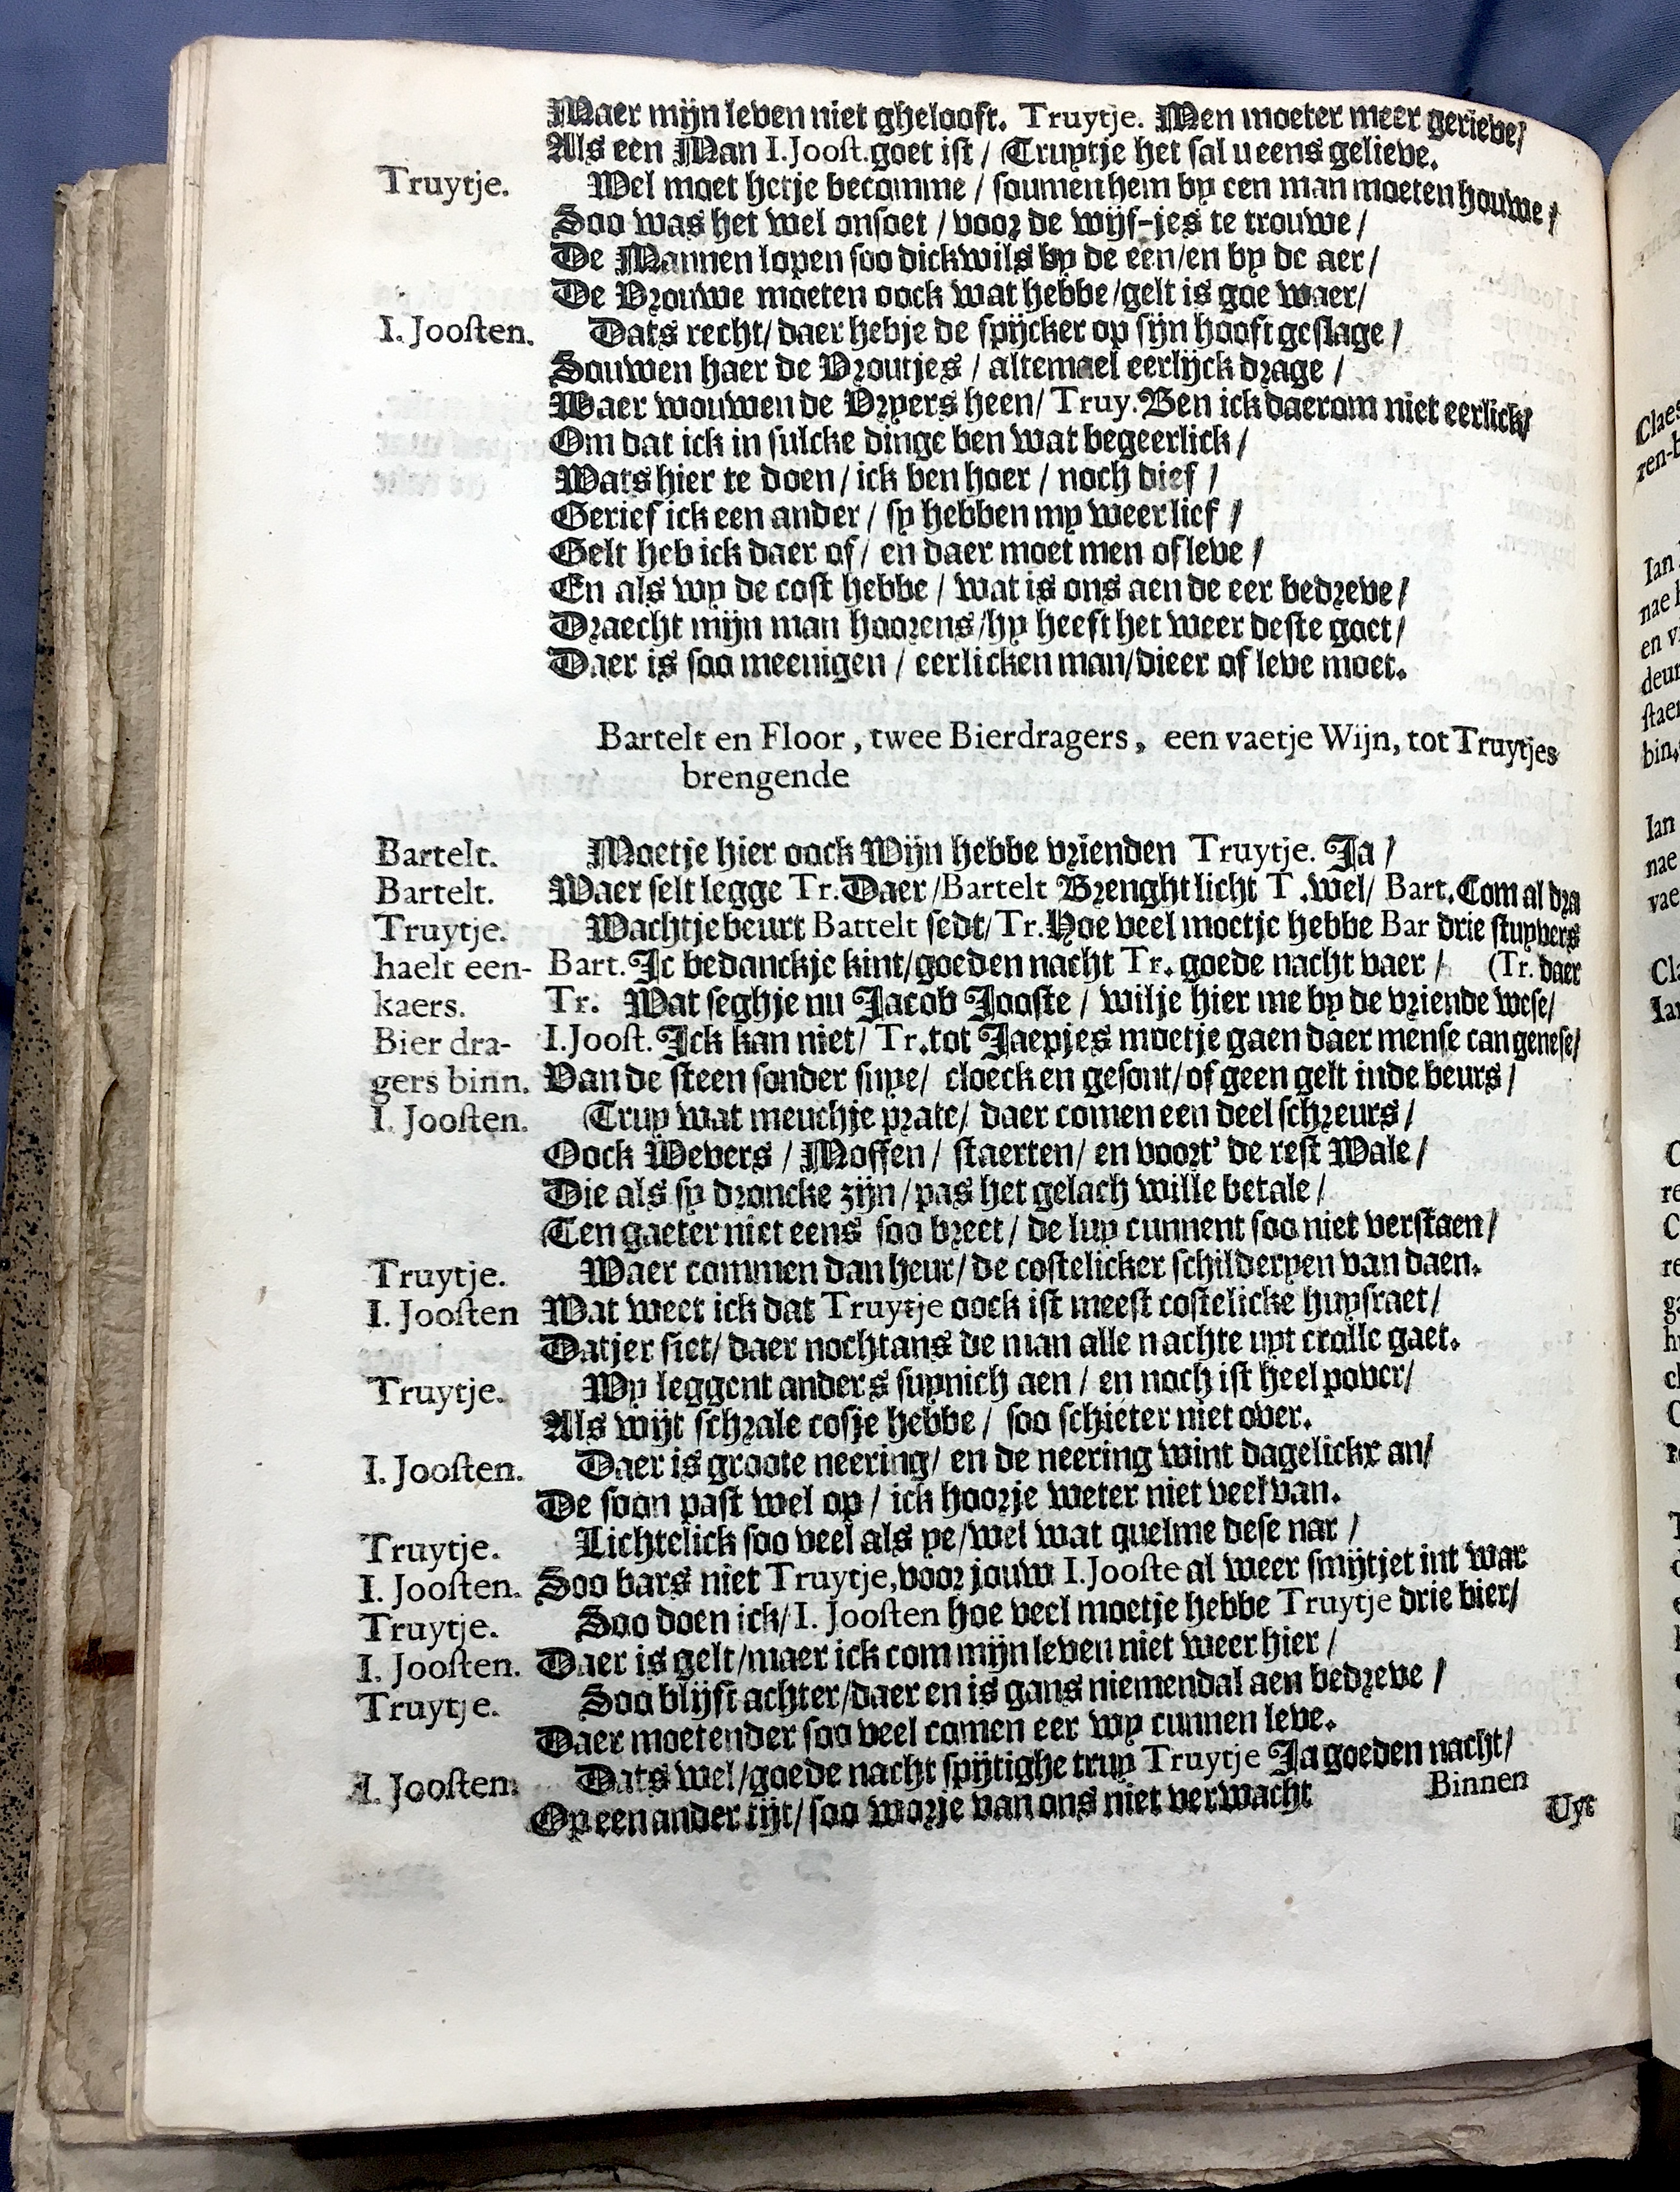 Maer mijn leven niet ghelooft. Truytje. Men moeter meer gerieve/
Als een Man I. Joost. goet ist / Truytje het sal u eens gelieve.
Truytje. Wel moet hetje becomme / soumen hem by een man moeten houwe /
Soo was het wel onsoet / voor de wijf-jes te trouwe /
De Mannen lopen soo dickwils by de een/en by de aer/
De Vrouwe moeten oock wat hebbe/gelt is goe waer/
I. Joosten. Dats recht/ daer hebje de spijcker op sijn hooft geslage /
Souwen haer de Vroutjes / altemael eerlijck drage /
Waer wouwen de Vryers heen/ Truy. Ben ick daerom niet eerlick/
Om dat ick in sulcke dinge ben wat begeerlick /
Wats hier te doen / ick ben hoer / noch dief /
Gerief ick een ander / sy hebben my weer lief /
Gelt heb ick daer of / en daer moet men of leve /
En als wy de cost hebbe / wat is ons aen de eer bedreve /
Draecht mijn man hoorens /hy heeft het weer deste goet /
Daer is soo meenigen / eerlicken man/dieer of leve moet.
Bartelt en Floor, twee Bierdragers, een vaetje Wijn, tot Truytjes
brengende
Bartelt. Moetje hier oock Wijn hebbe vrienden Truytje. Ja /
Bartelt. Waer selt legge Tr. Daer /Bartelt Brenght licht T. wel/ Bart. Com al dra
Truytje. Wachtje beurt Battelt sedt/ Tr. Hoe veel moetje hebbe Bar drie stuyvers
haelt een- Bart. Ic bedanckje kint/goeden nacht Tr. goede nacht vaer / (Tr. daer
kaers. Tr. Wat seghje nu Jacob Jooste / wilje hier me by de vriende wese/
Bier dra- I. Joost. Ick kan niet/ Tr. tot Jaepjes moetje gaen daer mense can genese/
gers binn. Van de steen sonder snye/ cloeck en gesont/of geen gelt inde beurs /
I. Joosten. Truy wat meuchje prate/ daer comen een deel schreurs /
Oock Wevers / Moffen / staerten/ en voort' de rest Wale /
Die als sy droncke zijn / pas het gelach wille betale /
Ten gaeter niet eens soo breet / de luy cunnent soo niet verstaen /
Truytje. Waer commen dan heur/ de costelicker schilderyen van daen.
I. Joosten Wat weet ick dat Truytje oock ist meest costelicke huysraet /
Datjer siet/ daer nochtans de man alle nachte uyt crolle gaet.
Truytje. Wy leggent anders suynich aen / en noch ist heel pover/
Als wijt schrale cosje hebbe / soo schieter niet over.
I. Joosten. Daer is groote neering/ en de neering wint dagelickx an/
De soon past wel op / ick hoorje weter niet veel van.
Truytje. Lichtelick soo veel als ye/wel wat quelme dese nar /
I. Joosten. Soo bars niet Truytje, voor jouw I. Jooste al weer smijtjet int war
Truytje. Soo doen ick/ I. Joosten hoe veel moetje hebbe Truytje drie bier/
I. Joosten. Daer is gelt/maer ick com mijn leven niet weer hier /
Truytje. Soo blijft achter/daer en is gans niemendal aen bedreve /
Daer moetender soo veel comen eer wy cunnen leve.
I. Joosten. Dats wel/goede nacht spijtighe truy Truytje Ja goeden nacht/
Op een ander tijt/ soo worje van ons niet verwacht Binnen
Uyt